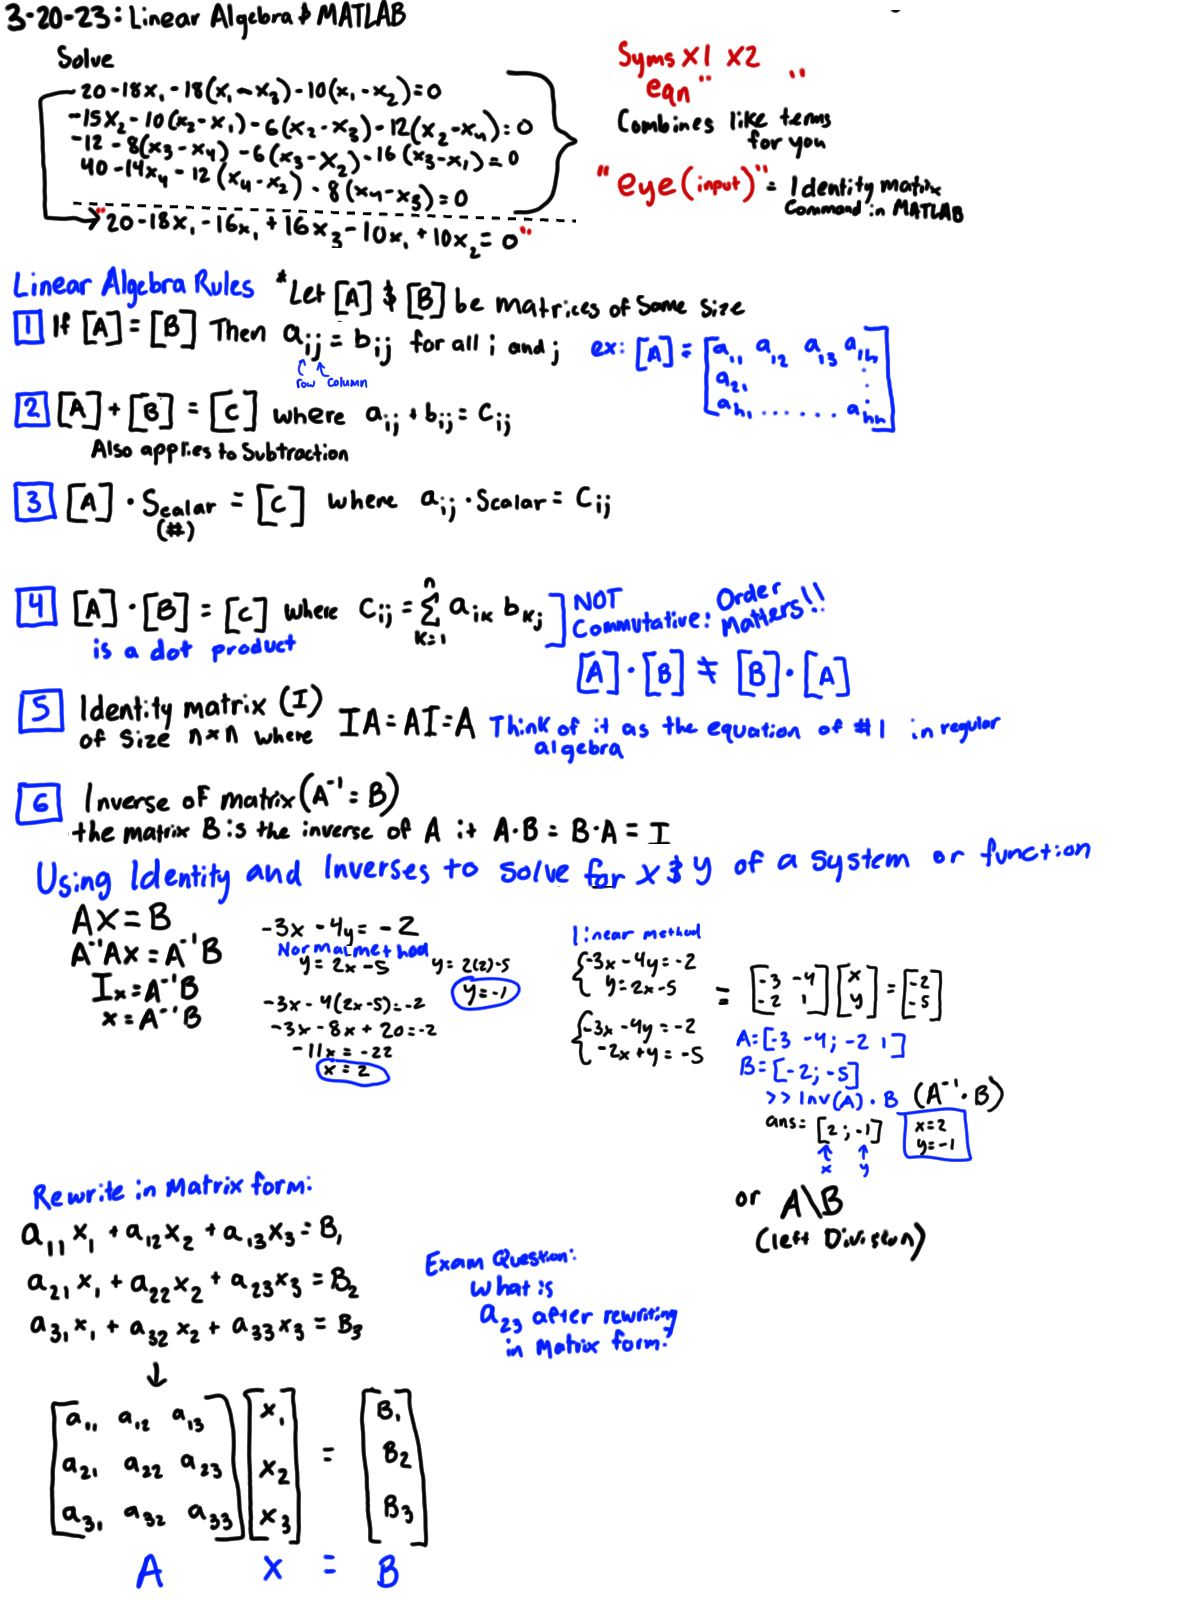 3-20-23: Linear Algebra & MATLAB
Solve
20-18x₁-18(x₁-x₃)-10(x₁-x₂)=0
-15x₂-10(x₂-x₁)-6(x₂-x₃)-12(x₂-x₄)=0
-12-8(x₃-x₄)-6(x₃-x₂)-16(x₃-x₁)=0
40-14x₄-12(x₄-x₂)-8(x₄-x₃)=0
"20-18x₁-16x₁+16x₃-10x₁+10x₂=0"
Syms x1 x2
eqn " "
Combines like terms
for you
"eye(input)" = Identity matrix
Command in MATLAB
Linear Algebra Rules *Let [A] & [B] be matrices of Same size
1 If [A]=[B] Then aᵢⱼ=bᵢⱼ for all i and j ex: [A]= [a₁₁ a₁₂ a₁₃ a₁ₙ
row column
a₂₁ :
aₙ₁ ...... aₙₙ]
2 [A]+[B]=[C] where aᵢⱼ+bᵢⱼ=Cᵢⱼ
Also applies to Subtraction
3 [A]·Scalar=[C] where aᵢⱼ·Scalar=Cᵢⱼ
(#)
4 [A]·[B]=[C] where Cᵢⱼ=
n
Σ aᵢₖ bₖⱼ
k=1
is a dot product
NOT Order
Commutative: Matters!!
[A]·[B] ≠ [B]·[A]
5 Identity matrix (I)
of Size n×n where IA=AI=A Think of it as the equation of #1 in regular
algebra
6 Inverse of matrix (A⁻¹=B)
the matrix B is the inverse of A it A·B=B·A=I
Using Identity and Inverses to solve for x & y of a system or function
AX=B
A⁻¹Ax=A⁻¹B
Ix=A⁻¹B
x=A⁻¹B
-3x-4y=-2
Normal method
y=2x-5 y=2(2)-5
y=-1
-3x-4(2x-5)=-2
-3x-8x+20=-2
-11x=-22
x=2
linear method
{-3x-4y=-2
y=2x-5
{-3x-4y=-2
-2x+y=-5
= [-3 -4 [x = [-2
-2 1] y] -5]
A=[-3 -4; -2 1]
B=[-2; -5]
>> Inv(A)·B (A⁻¹·B)
ans= [2; -1]
x y
x=2
y=-1
or A\B
(left Division)
Rewrite in Matrix form:
a₁₁x₁+a₁₂x₂+a₁₃x₃=B₁
a₂₁x₁+a₂₂x₂+a₂₃x₃=B₂
a₃₁x₁+a₃₂x₂+a₃₃x₃=B₃
Exam Question:
What is
a₂₃ after rewriting
in Matrix form?
↓
[a₁₁ a₁₂ a₁₃ [x₁ [B₁
a₂₁ a₂₂ a₂₃ x₂ = B₂
a₃₁ a₃₂ a₃₃] x₃] B₃]
A x = B